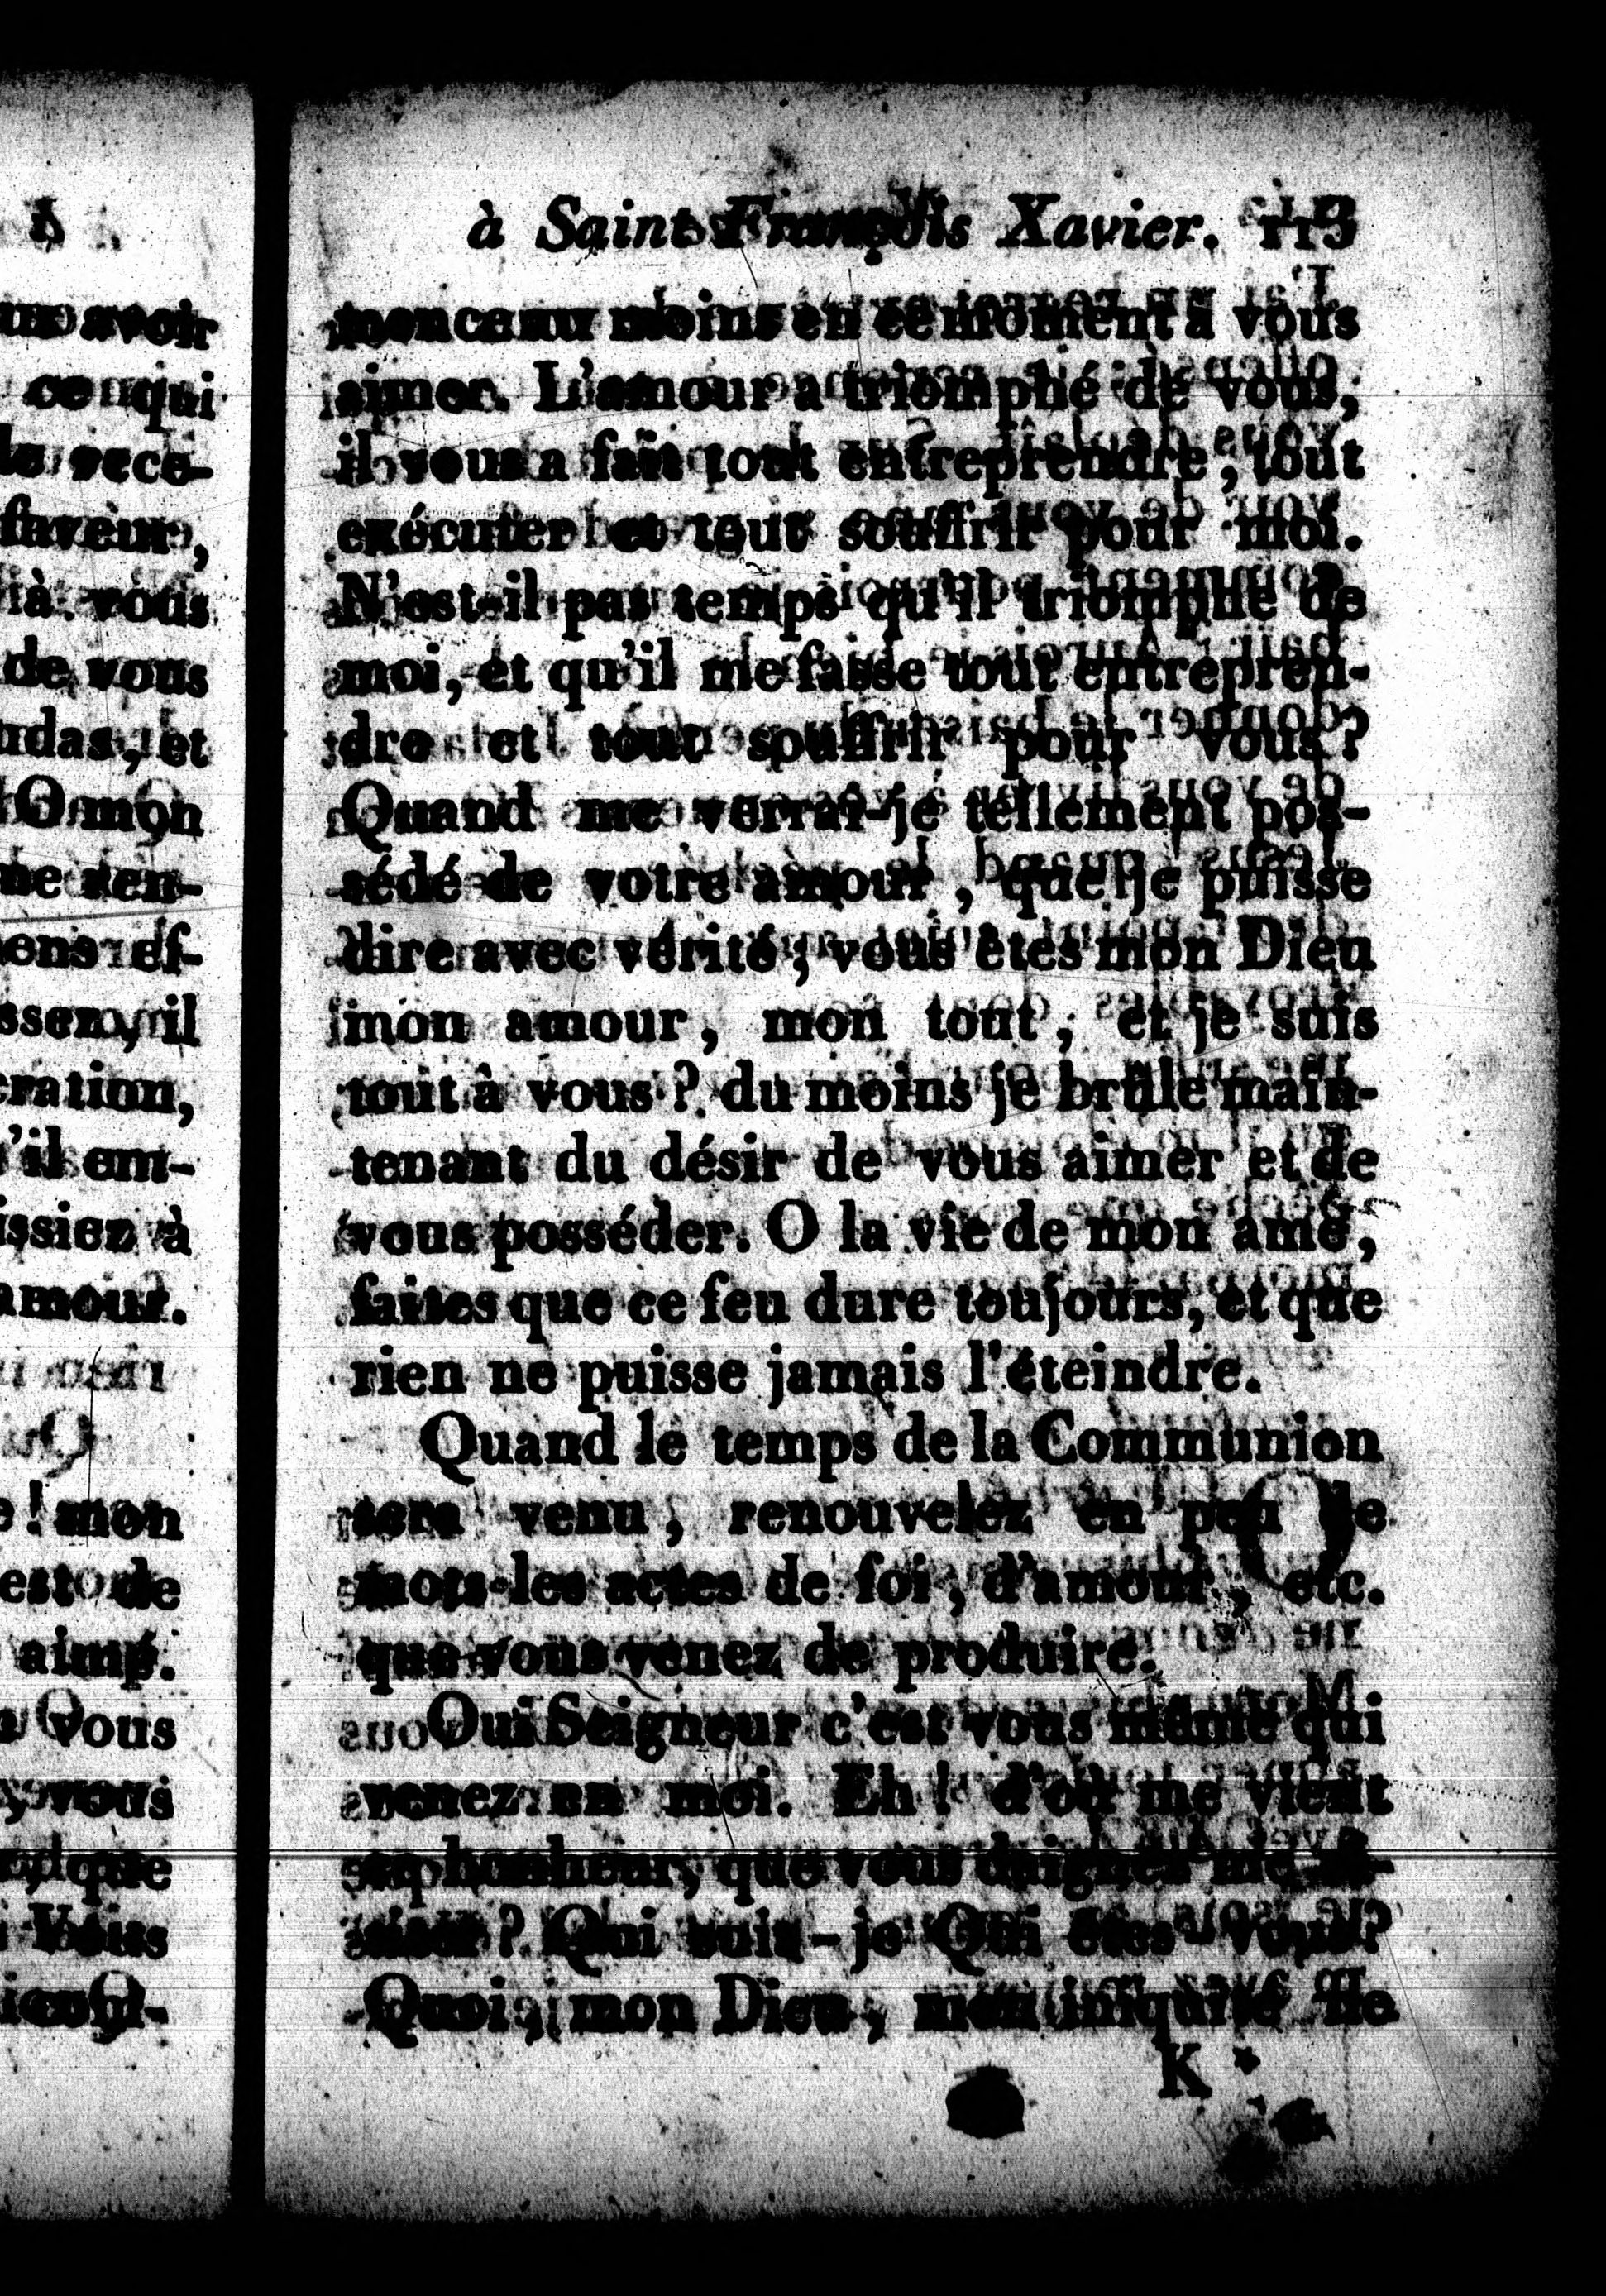 à
avoir
ce qui
rece-
faveur,
à vous
de vous
udas, et
O mon
me ren-
ens ef-
ssez, il
ération,
'il em-
issiez à
amour.
! mon
est de
aimé.
vous
, vous
que
à Saint François Xavier. 113
mence au moins en ce moment à vous
aimer. L'amour a triomphé de vous,
il vous a fait tout entreprendre, tout
exécuter et tout souffrir pour moi.
N'est-il pas temps qu'il triomphe de
moi, et qu'il me fasse tout entrepren-
dre et tout souffrir pour vous?
Quand me verrai-je tellement pos-
sédé de votre amour, que je puisse
dire avec vérité; vous êtes mon Dieu
mon amour, mon tout, et je suis
tout à vous? du moins je brûle main-
tenant du désir de vous aimer et de
vous posséder. O la vie de mon ame,
faites que ce feu dure toujours, et que
rien ne puisse jamais l'éteindre.
Quand le temps de la Communion
sera venu, renouvelez en peu de
mots les actes de foi, d'amour, etc.
que vous venez de produire.
Oui Seigneur c'est vous même qui
venez en moi. Eh! d'où me vient
ce bonheur, que vous daignez me vi-
siter? Qui suis-je Qui êtes vous?
Quoi, mon Dieu, mon iniquité ne
K *